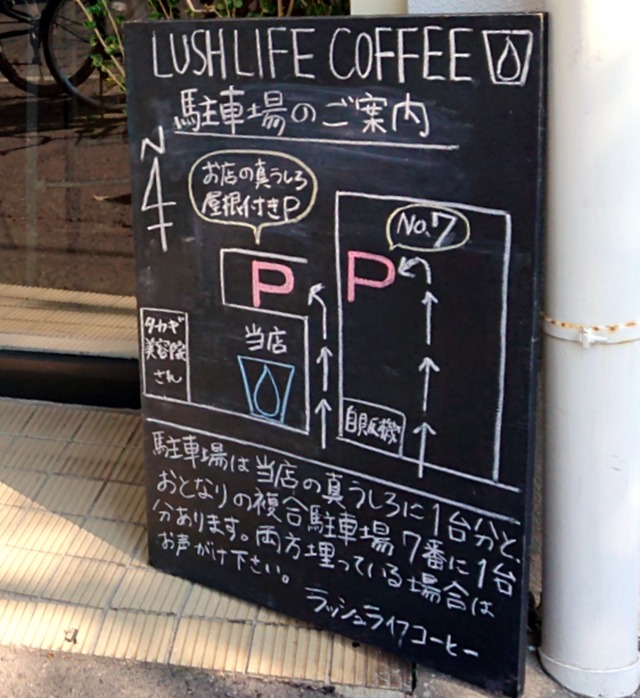 LUSH LIFE COFFEE
駐車場のご案内
N
お店の真うしろ
屋根付きP
No.7
P
P
タカギ
美容院
さん
当店
自販機
駐車場は当店の真うしろに1台分と、
おとなりの複合駐車場7番に1台
分あります。両方埋っている場合は
お声がけ下さい。
ラッシュライフコーヒー